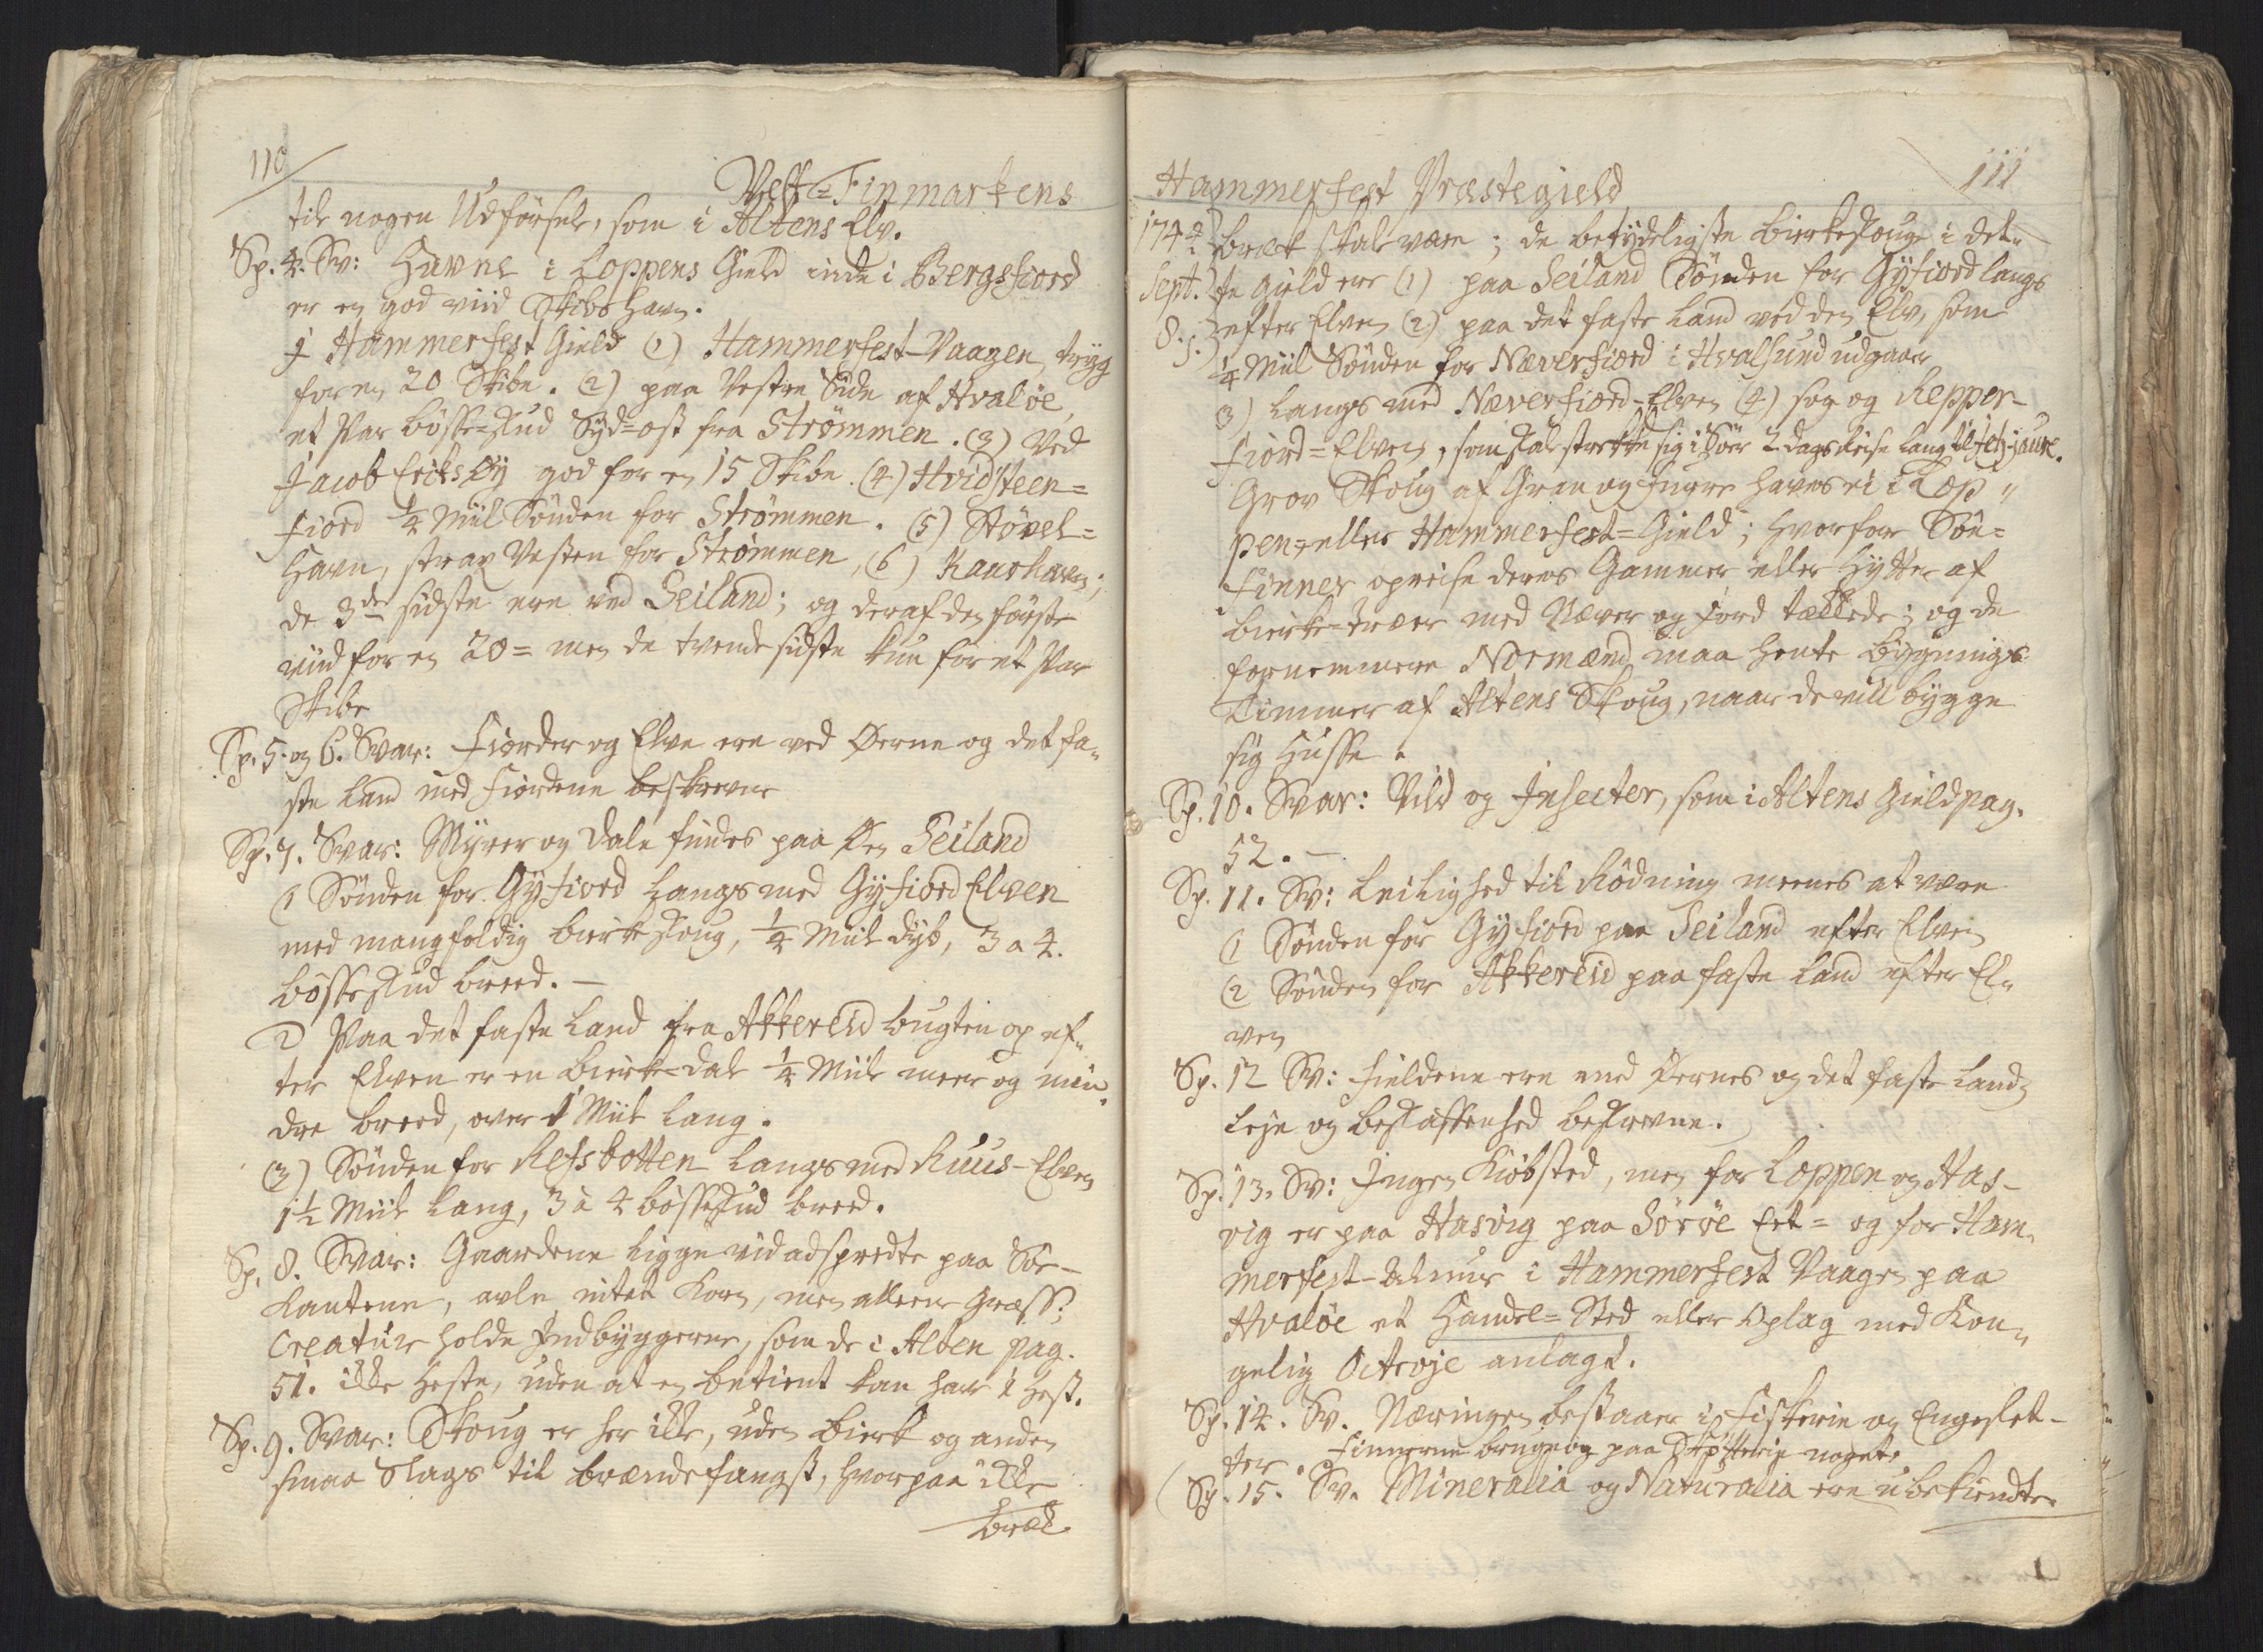 110
Vest-Finmarkens
til nogen Udførsel, som i Altens Elv.
Sp. 4. Sv: Havne i Loppens Gield inde i Bergsfiord
er en god viid Skibs Havn.
I Hammerfest Gield (1) Hammerfest-Vaagen, tryg
for en 20 Skibe. (2) paa Vestre Side af Hvaløe,
et Par bösse-skud Syd-ost fra Strømmen. (3) Ved
Jacob Eriks Øy god for en 15 Skibe. (4) Hvidsteen=
fiord ¼ Miil Sönden for Strømmen. (5) Stövel=
Havn, strax Vesten for Strømmen, (6)
de 3de sidste ere ved Seiland; og deraf den förste
viid for en 20= men de tvende sidste kun for et Par
Skibe
Sp. 5. og 6. Svar: Fiorder og Elve ere ved Øerne og det fa„
ste Land med Fiordene beskrevne
Sp. 7. Svar: Myrer og Dale findes paa Øen Seiland
(1 Sönden for Gyfiord langs med Gyfiord Elven
med mangfoldig birkeskoug, ¼ Miil dyb, 3 a 4.
bösseskud breed. —
2) Paa det faste Land fra Akkereid bugten op ef„
ter Elven er en Bierke-dal ¼ Miil meer og min„
dre breed, over 1 Miil lang.
(3) Sönden for Refsbotten langs med Kuus-Elven
1½ Miil lang, 3 à 4 bösseskud breed.
Sp. 8. Svar: Gaardene ligge vid adspredte paa Söe-
Kantene, avle intet Korn, men alleene Græss;
Creature holde Indbyggerne, som de i Alten pag.
51. ikke Heste, uden at en betient kan have 1 Hest.
Sp. 9. Svar: Skoug er her ikke, uden Bierk og anden
smaa Slags til brændefangst, hvorpaa ikke
bræk
Hammerfest Præstegield
111
1742/1 bræk skal være; de betydeligste bierkeskouge i det„
Sept. te Gield ere (1) paa Seiland Sönden for Gyfiord langs
8. s. efter Elven (2) paa det faste Land ved den Elv, som
¼ Miil Sönden for Næverfiord i Hvalsund udgaaer
3) langs med Næverfiord-Elven (4) sog og Repper-
fiord=Elven, som skal strekke sig i Söer 2 Dags Reise lang til
Grov Skoug af Gran og Furre haves ei i Lop„
pen= eller Hammerfest=Gield; hvorfor Söe=
finner opreise deres Gammer eller Hytter af
bierke-træer med Næver og Jord tækkede; og de
fornemmere Normænd maa hente bygnings
Timmer af Altens Skoug, naar de vill bygge
sig Husse.
Sp. 10. Svar: Vild og Insecter, som i Altens Gield pag.
52. —
Sp. 11. Sv: Leilighed til Rödning meenes at være
(1 Sönden for Gyfiord paa Seiland efter Elven
(2 Sönden for Akkereid paa faste Land efter El„
ven
Sp. 12 Sv: Fieldene ere med Øernes og det faste Lands
Leje og beskaffenhed beskrevne.
Sp. 13. Sv: Ingen Kiöbsted, men for Loppen og Has-
vig er paa Hasvig paa Söröe Eet= og for Ham„
merfest-Almue i Hammerfest Vaagen paa
Hvaløe et Handel=Sted eller Oplag med Kon„
gelig Octroje anlagt.
Sp. 14. Sv. Næringen bestaaer i Fiskerie og Engeslet-
ter. Finnerne bruge og paa Skytterie noget.
Sp. 15. Sv. Mineralia og Naturalia ere ubekiendte.